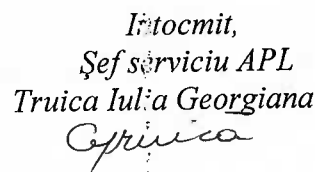 Întocmit,
Şef serviciu APL
Truica Iulia Georgiana